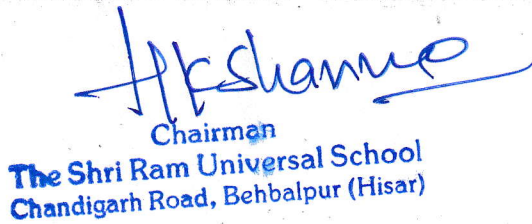 Chairman
The Shri Ram Universal School
Chandigarh Road, Behbalpur (Hisar)